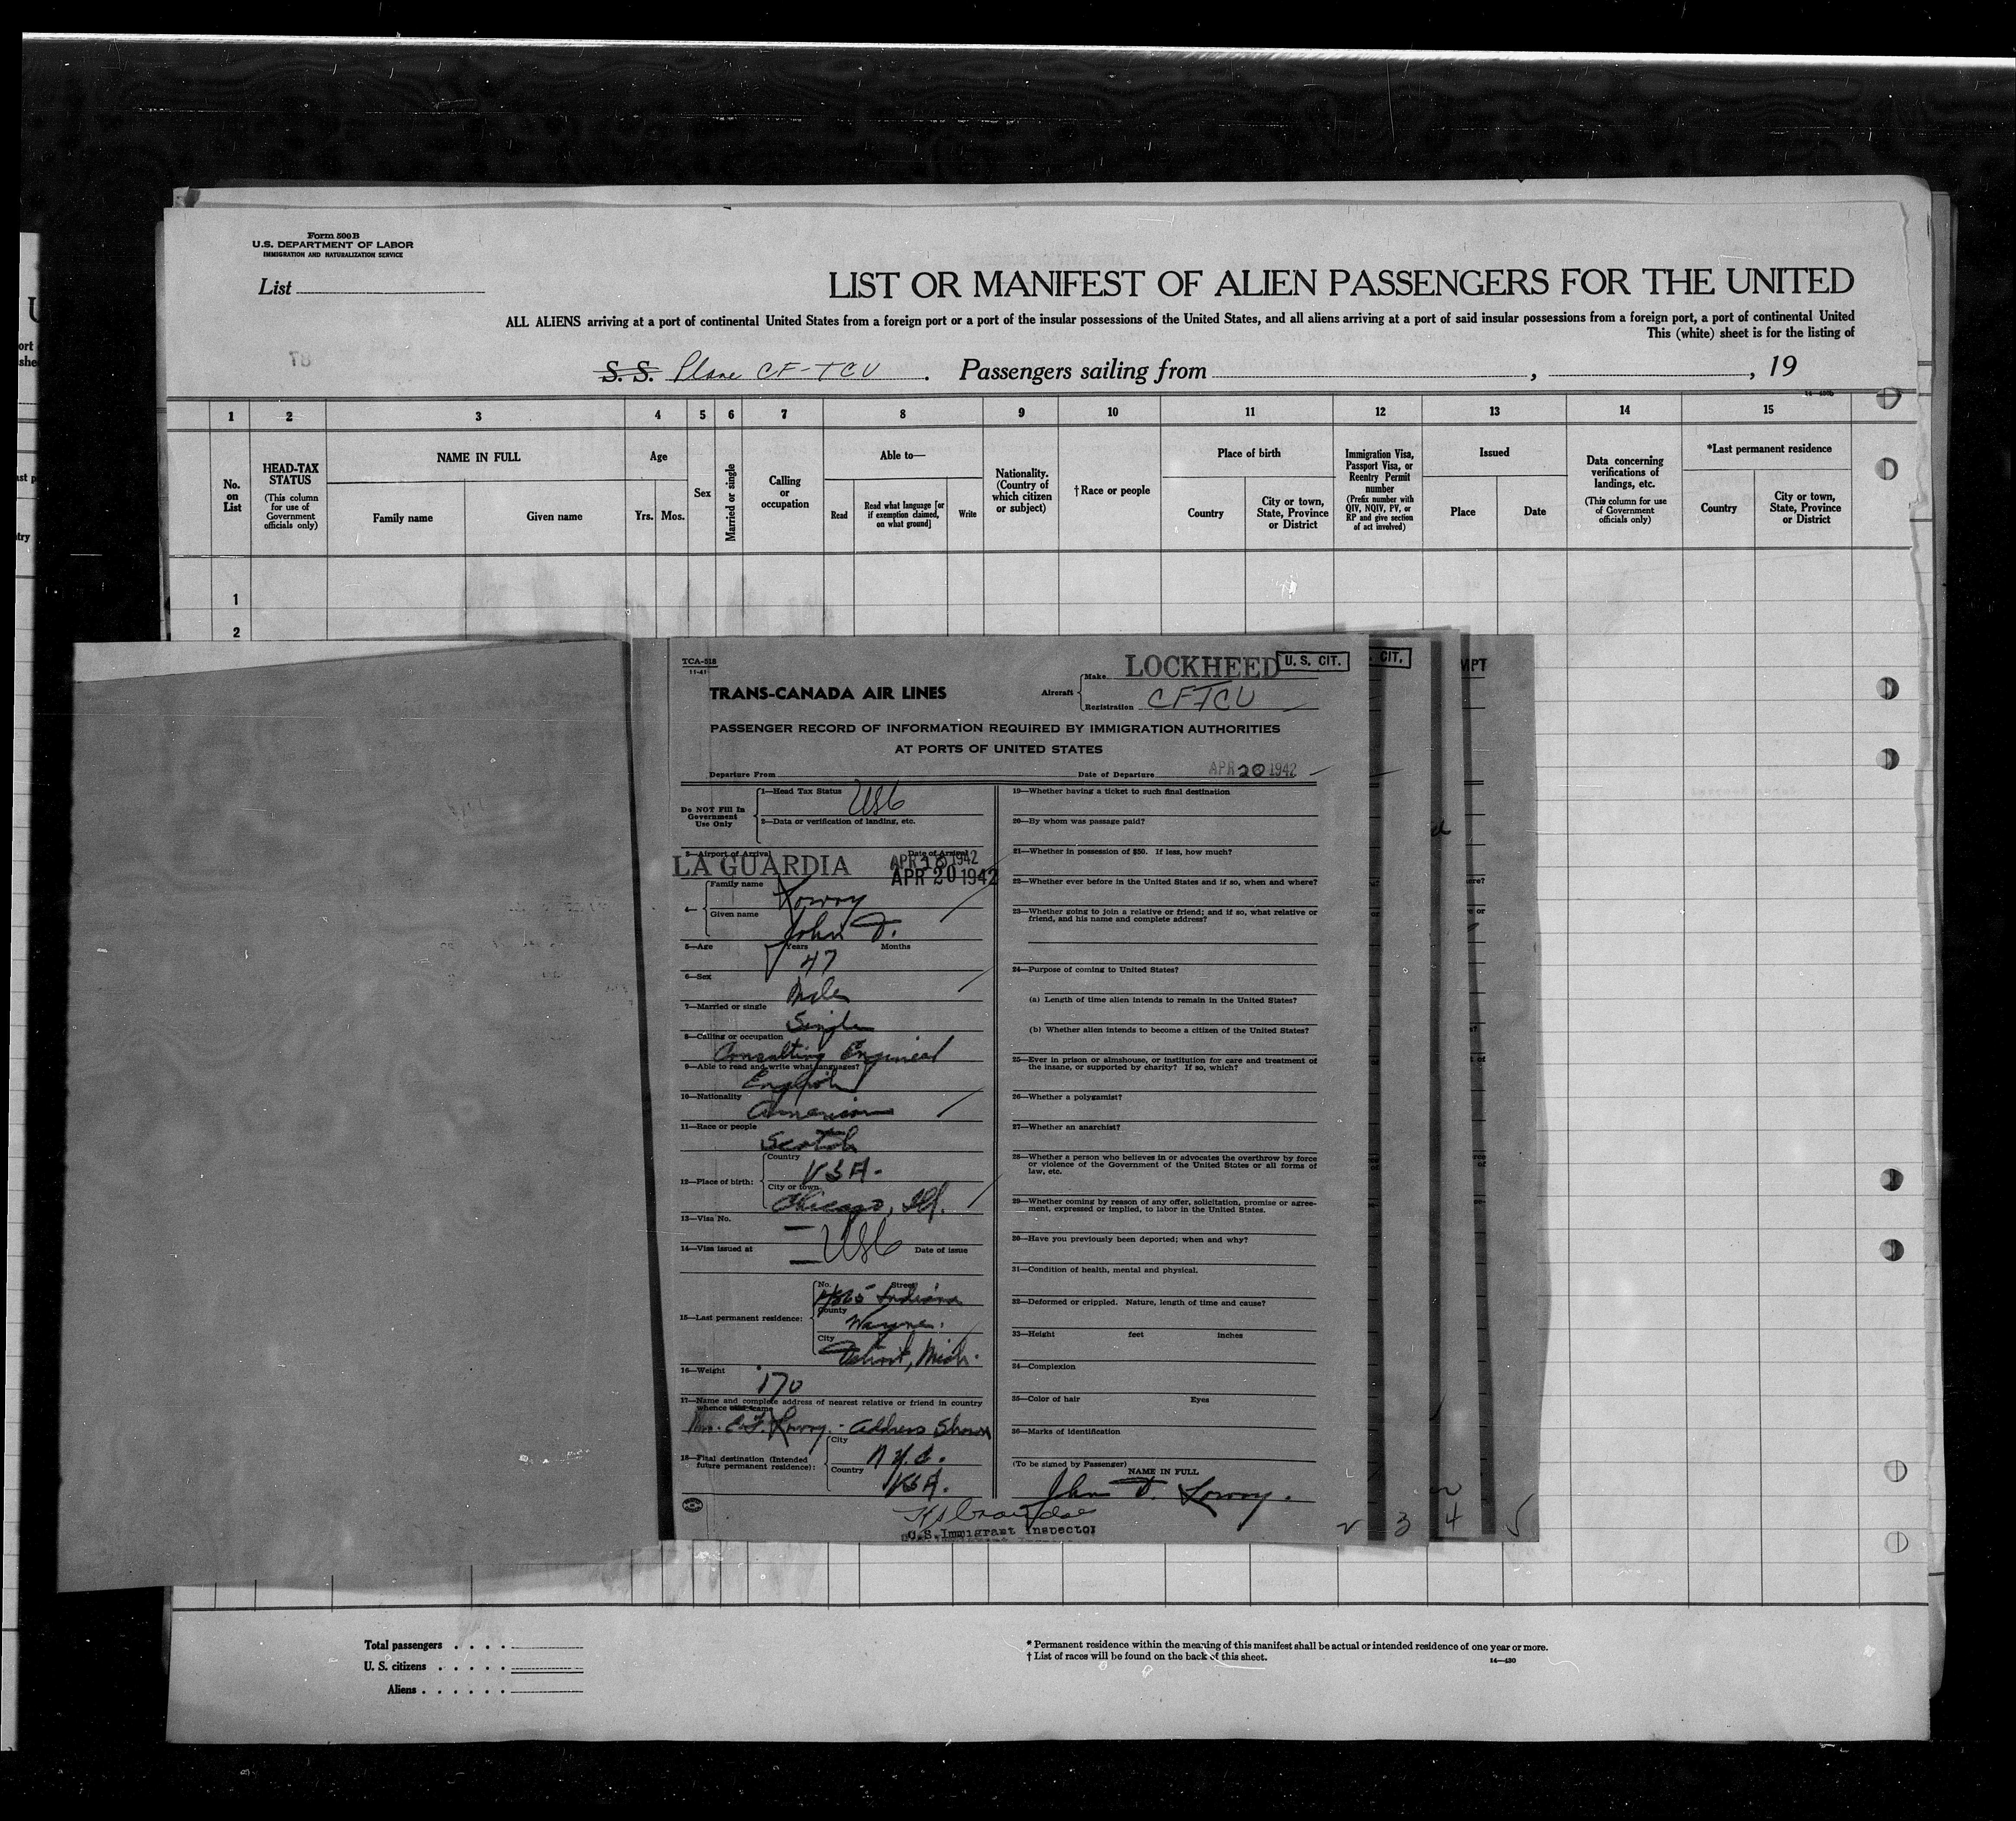 Form 500B
U.S. DEPARTMENT OF LABOR
IMMIGRATION AND NATURALIZATION SERVICE
List
LIST OR MANIFEST OF ALIEN PASSENGERS FOR THE UNITED
ALL ALIENS arriving at a port of continental United States from a foreign port or a port of the insular possessions of the United States, and all aliens arriving at a port of said insular possessions from a foreign port, a port of continental United
This (white) sheet is for the listing of
S. S. Plane CF-TCU . Passengers sailing from , , 19
1 2 3 4 5 6 7 8 9 10 11 12 13 14 15
No. on List
HEAD-TAX STATUS
(This column for use of Government officials only)
NAME IN FULL
Family name
Given name
Age
Yrs. Mos.
Sex
Married or single
Calling or occupation
Able to—
Read
Read what language [or if exemption claimed, on what ground]
Write
Nationality. (Country of which citizen or subject)
†Race or people
Place of birth
Country
City or town, State, Province or District
Immigration Visa, Passport Visa, or Reentry Permit number
(Prefix number with QIV, NQIV, PV, or RP and give section of act involved)
Issued
Place
Date
Data concerning verifications of landings, etc.
(This column for use of Government officials only)
*Last permanent residence
Country
City or town, State, Province or District
1
2
TCA-518
11-41
TRANS-CANADA AIR LINES
Aircraft
Make LOCKHEED
Registration CFTCU
U. S. CIT.
CIT.
MPT
PASSENGER RECORD OF INFORMATION REQUIRED BY IMMIGRATION AUTHORITIES
AT PORTS OF UNITED STATES
Departure From Date of Departure APR 20 1942
Do NOT Fill In Government Use Only
1—Head Tax Status USC
2—Data or verification of landing, etc.
3—Airport of Arrival Date of Arrival
LA GUARDIA APR 20 1942
4—
Family name
Given name John
5—Age Years 47 Months
6—Sex Male
7—Married or single Single
8—Calling or occupation
Consulting Engineer
9—Able to read and write what languages?
English
10—Nationality
American
11—Race or people
Scotch
12—Place of birth:
Country USA.
City or town
Chicago, Ill.
13—Visa No. —
14—Visa issued at — USC Date of issue
15—Last permanent residence:
No. Street Indiana
County
Wayne.
City
Detroit, Mich.
16—Weight
170
17—Name and complete address of nearest relative or friend in country
whence came
Address Shown
18—Final destination (Intended future permanent residence):
City N.Y.C.
Country USA.
19—Whether having a ticket to such final destination
20—By whom was passage paid?
21—Whether in possession of $50. If less, how much?
22—Whether ever before in the United States and if so, when and where?
23—Whether going to join a relative or friend; and if so, what relative or
friend, and his name and complete address?
24—Purpose of coming to United States?
(a) Length of time alien intends to remain in the United States?
(b) Whether alien intends to become a citizen of the United States?
25—Ever in prison or almshouse, or institution for care and treatment of
the insane, or supported by charity? If so, which?
26—Whether a polygamist?
27—Whether an anarchist?
28—Whether a person who believes in or advocates the overthrow by force
or violence of the Government of the United States or all forms of
law, etc.
29—Whether coming by reason of any offer, solicitation, promise or agree-
ment, expressed or implied, to labor in the United States.
30—Have you previously been deported; when and why?
31—Condition of health, mental and physical.
32—Deformed or crippled. Nature, length of time and cause?
33—Height feet inches
34—Complexion
35—Color of hair Eyes
36—Marks of identification
(To be signed by Passenger)
NAME IN FULL
John
U.S. Immigrant Inspector
2 3 4 5
Total passengers . . . .
U. S. citizens . . . . .
Aliens . . . . . .
* Permanent residence within the meaning of this manifest shall be actual or intended residence of one year or more.
† List of races will be found on the back of this sheet.
14—430